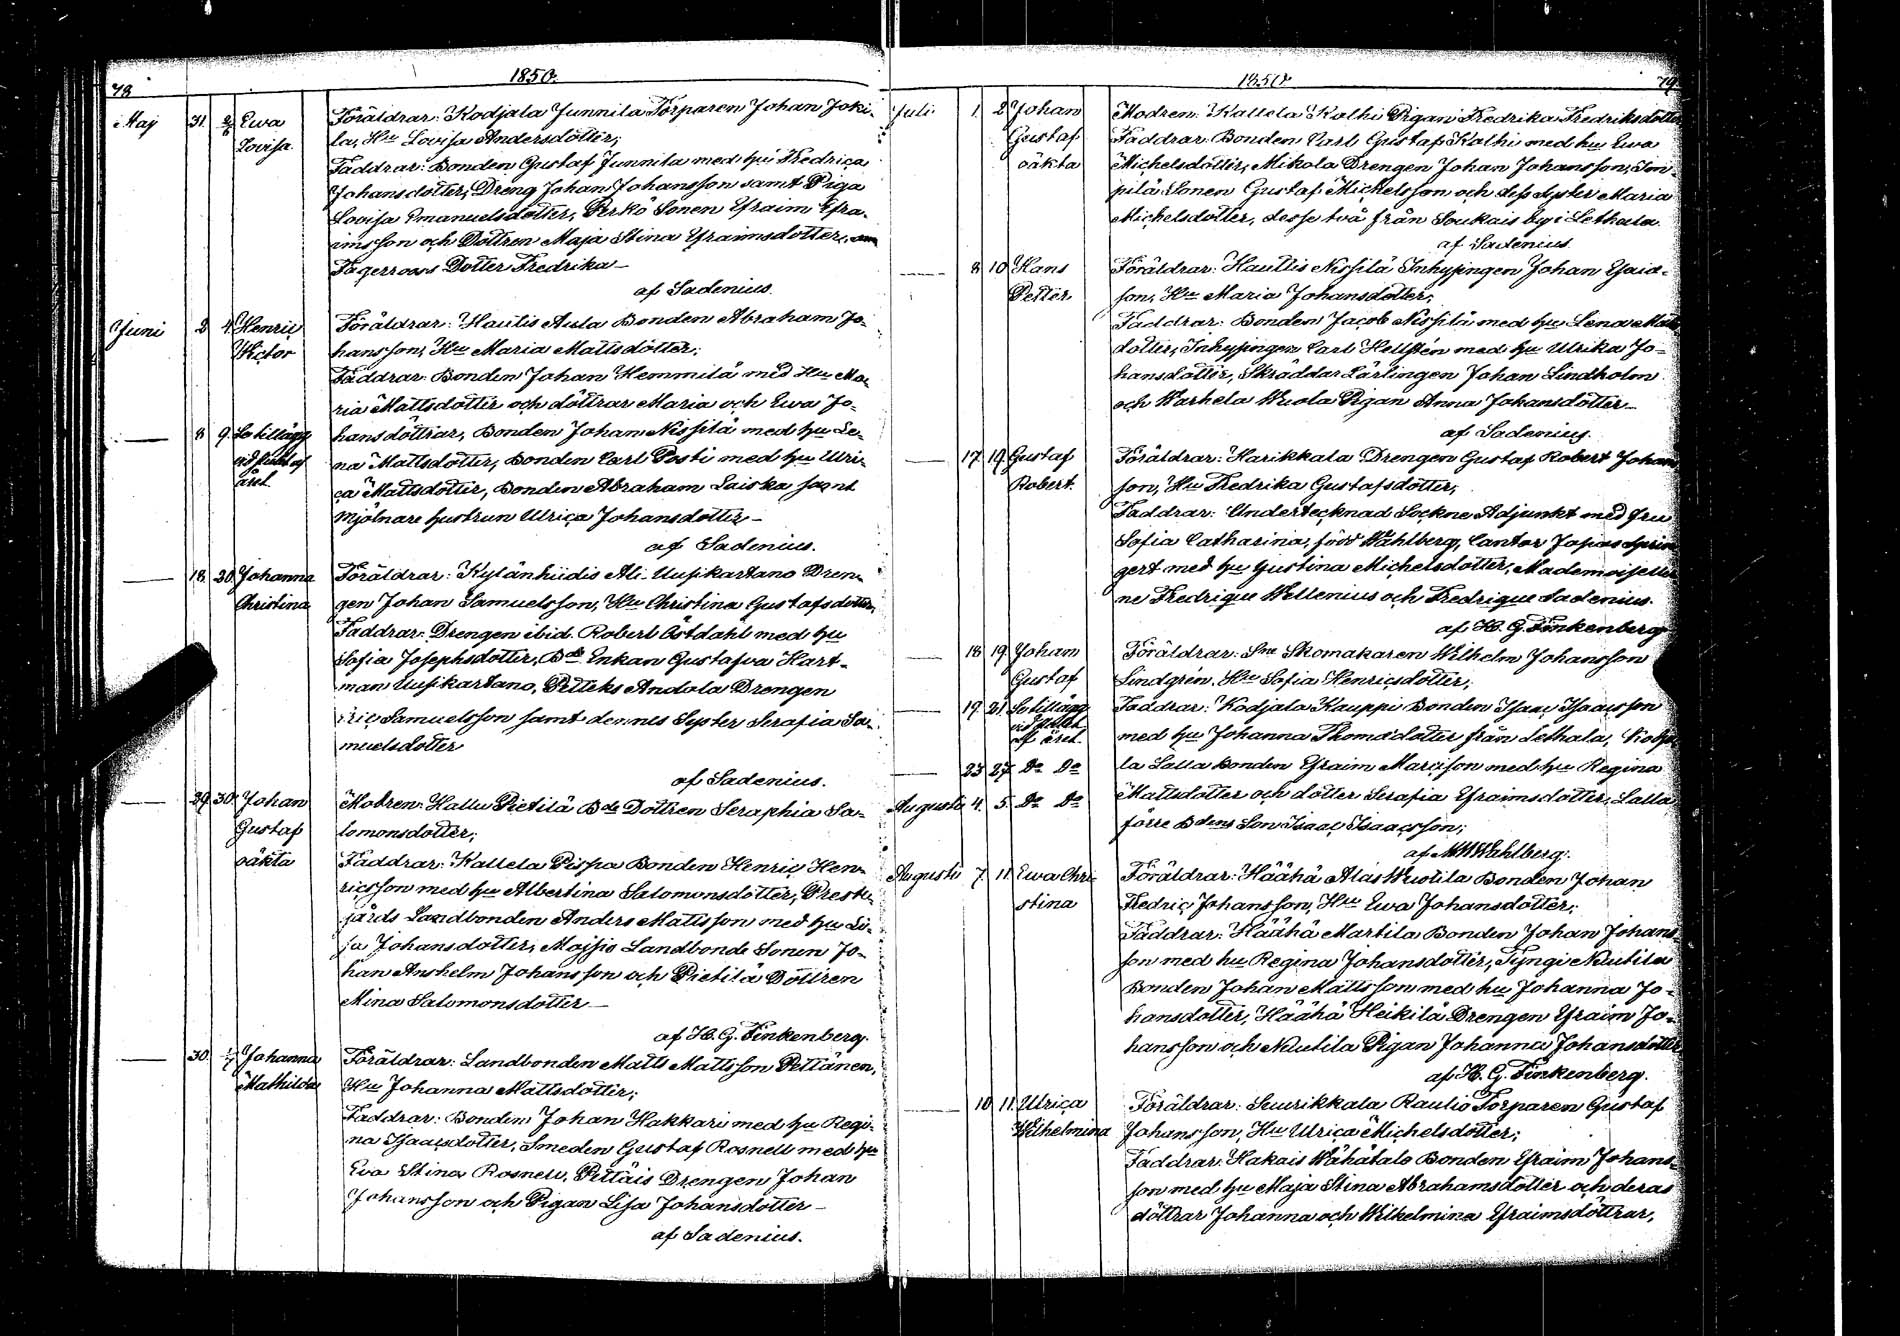 78.
1850.
Maj 31. 2/6 Ewa Föräldrar: Kodjala Junnila Torparen Johan Joki-
Lovisa. la, Hu Lovisa Andersdotter;
Faddrar: Bonden Gustaf Junnila med hu Fredrica
Johansdotter, Dreng Johan Johansson samt Piga
Lovisa Emanuelsdotter, Perkö Sonen Efraim Efra-
imsson och Dottren Maja Stina Efraimsdotter,
Fagerroos Dotter Fredrika—
af Sadenius.
Juni 2 4. Henric Föräldrar: Hautis Aula Bonden Abraham Jo-
Wictor hansson, Hu Maria Mattsdotter;
Faddrar: Bonden Johan Hemmilä med Hu Ma-
ria Mattsdotter och döttrar Maria och Ewa Jo-
— 8 9. Se tillägg hansdöttrar, Bonden Johan Nissilä med hu Le-
vid slutet af na Mattsdotter, Bonden Carl Posti med hu Ulri-
året. ca Mattsdotter, Bonden Abraham Laiska samt
Mjölnare hustrun Ulrica Johansdotter—
af Sadenius.
— 18. 20. Johanna Föräldrar: Kylänhiidis Ali-Uusikartano Dren-
Christina gen Johan Samuelsson, Hu Christina Gustafsdotter,
Faddrar: Drengen ibid. Robert Östdahl med hu
Sofia Josephsdotter, Bde Enkan Gustafva Hart-
man Uusikartano, Pelteks Andola Drengen
Samuelsson samt dennes Syster Serafia Sa-
muelsdotter
af Sadenius.
— 29. 30. Johan Modren: Hallu Pietilä Bde Dottren Seraphia Sa-
Gustaf lomonsdotter;
oäkta Faddrar: Kallela Pispa Bonden Henric Hen-
ricsson med hu Albertina Salomonsdotter, Preste-
gårds Landbonden Anders Mattsson med hu Li-
sa Johansdotter, Landbonde Sonen Jo-
han Anshelm Johansson och Pietilä Dottren
Mina Salomonsdotter—
af H. G. Finkenberg.
— 30. 1/7 Johanna Föräldrar: Landbonden Matts Mattsson Pettänen,
Mathilda Hu Johanna Mattsdotter;
Faddrar: Bonden Johan Hakkari med hu Regi-
na Isaacsdotter, Smeden Gustaf Rosnell med hu
Eva Stina Rosnell, Pettäis Drengen Johan
Johansson och Pigan Lisa Johansdotter—
af Sadenius.
1850
79.
Juli 1. 2 Johan Modren: Kallela Kalhi Pigan Fredrika Fredriksdotter
Gustaf Faddrar: Bonden Carl Gustaf Kalhi med hu Ewa
oäkta Michelsdotter, Mikola Drengen Johan Johansson, Sim-
pilä Sonen Gustaf Michelsson och dess Syster Maria
Michelsdotter, desse två från Soukais by i Lethala.
af Sadenius.
— 8. 10 Hans Föräldrar: Hauttis Nissilä Inhysingen Johan Esaia-
Petter. son, Hu Maria Johansdotter;
Faddrar: Bonden Jacob Nissilä med hu Lena Matts
dotter, Inhysingen Carl Hellstén med hu Ulrika Jo-
hansdotter, Skräddar Lärlingen Johan Lindholm
och Warhela Wuola Pigan Anna Johansdotter—
af Sadenius.
— 17. 19. Gustaf Föräldrar: Harikkala Drengen Gustaf Robert Johans
Robert. son, Hu Fredrika Gustafsdotter;
Faddrar: Undertecknad Sockne Adjunkt med fru
Sofia Catharina, född Wahlberg, Cantor
gert med hu Justina Michelsdotter, Mademoiseller
ne Fredrique Wellenius och Fredrique Sadenius.
af H. G. Finkenberg
— 18 19. Johan Föräldrar: Skomakaren Wilhelm Johansson
Gustaf Lindgrén. Hu Sofia Henricsdotter;
— 19. 21. Se tillägg Faddrar: Kodjala Kauppi Bonden Isaac Isaacsson
vid slutet
af året. med hu Johanna Thomasdotter från Lethala,
— 23 27. Do Do la Lalla Bonden Efraim Marcisson med hu Regina
Augusti 4. 5. Do Do Mattsdotter och dotter Serafia Efraimsdotter, Lalla
förre Bdens Son Isaac Isaacsson;
af Wahlberg.
Augusti 7. 11. Ewa Chri- Föräldrar: Häähä Alas Wuotila Bonden Johan
stina Fredric Johansson, Hu Ewa Johansdotter;
Faddrar: Häähä Martila Bonden Johan Johans-
son med hu Regina Johansdotter, Tyngi Nautila
Bonden Johan Mattsson med hu Johanna Jo-
hansdotter, Häähä Heikilä Drengen Efraim Jo-
hansson och Nautila Pigan Johanna Johansdotter
af H. G. Finkenberg.
— 10 11. Ulrica Föräldrar: Suurikkala Raulio Torparen Gustaf
Wilhelmina Johansson, Hu Ulrica Michelsdotter;
Faddrar: Hakais Wähätalo Bonden Efraim Johans-
son med hu Maja Stina Abrahamsdotter och deras
döttrar Johanna och Wilhelmina Efraimsdöttrar,